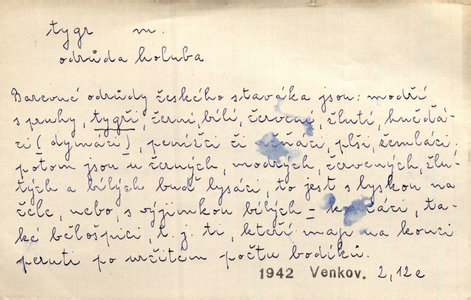 tygr m.
odrůda holuba
Barevné odrůdy českého staváka jsou: modří
s pruhy, tygři, černí, bílí, červení, žlutí kuclá
(dymáci), perníčci či plši, žemláci,
potom jsou u černých, modrých, červených, žlu-
tých a bílých buď lysáci, to jest s lyskou na
čele, nebo, s výjimkou bílých – ta-
ké bělošpici, t. j. ti, kteří mají na konci
peruti po určitém počtu bodíků.
1942 Venkov. 2, 12 e